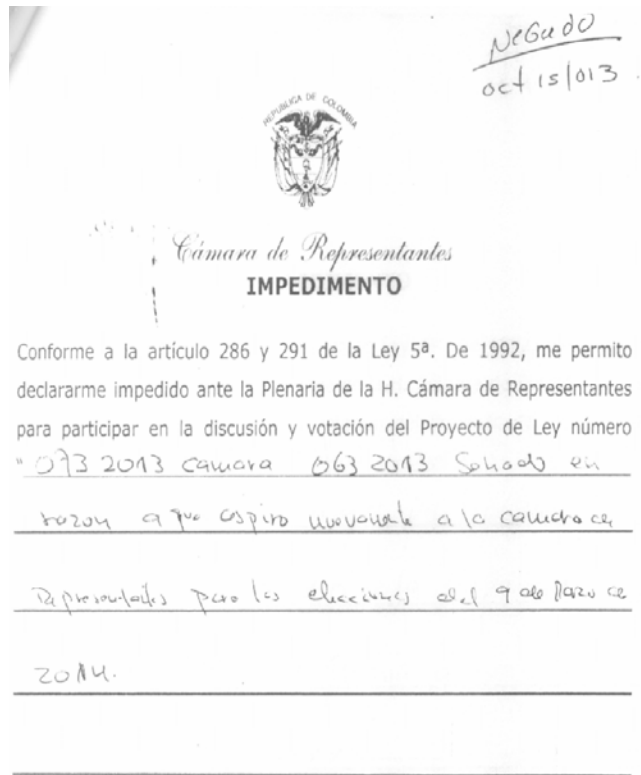 Negado
oct 15/013
REPUBLICA DE COLOMBIA
Cámara de Representantes
IMPEDIMENTO
Conforme a la artículo 286 y 291 de la Ley 5ª. De 1992, me permito
declararme impedido ante la Plenaria de la H. Cámara de Representantes
para participar en la discusión y votación del Proyecto de Ley número
" 073 2013 camara 063 2013 Senado en
razon a que aspiro nuevamente a la camara de
Representantes para las elecciones del 9 de Marzo de
2014.